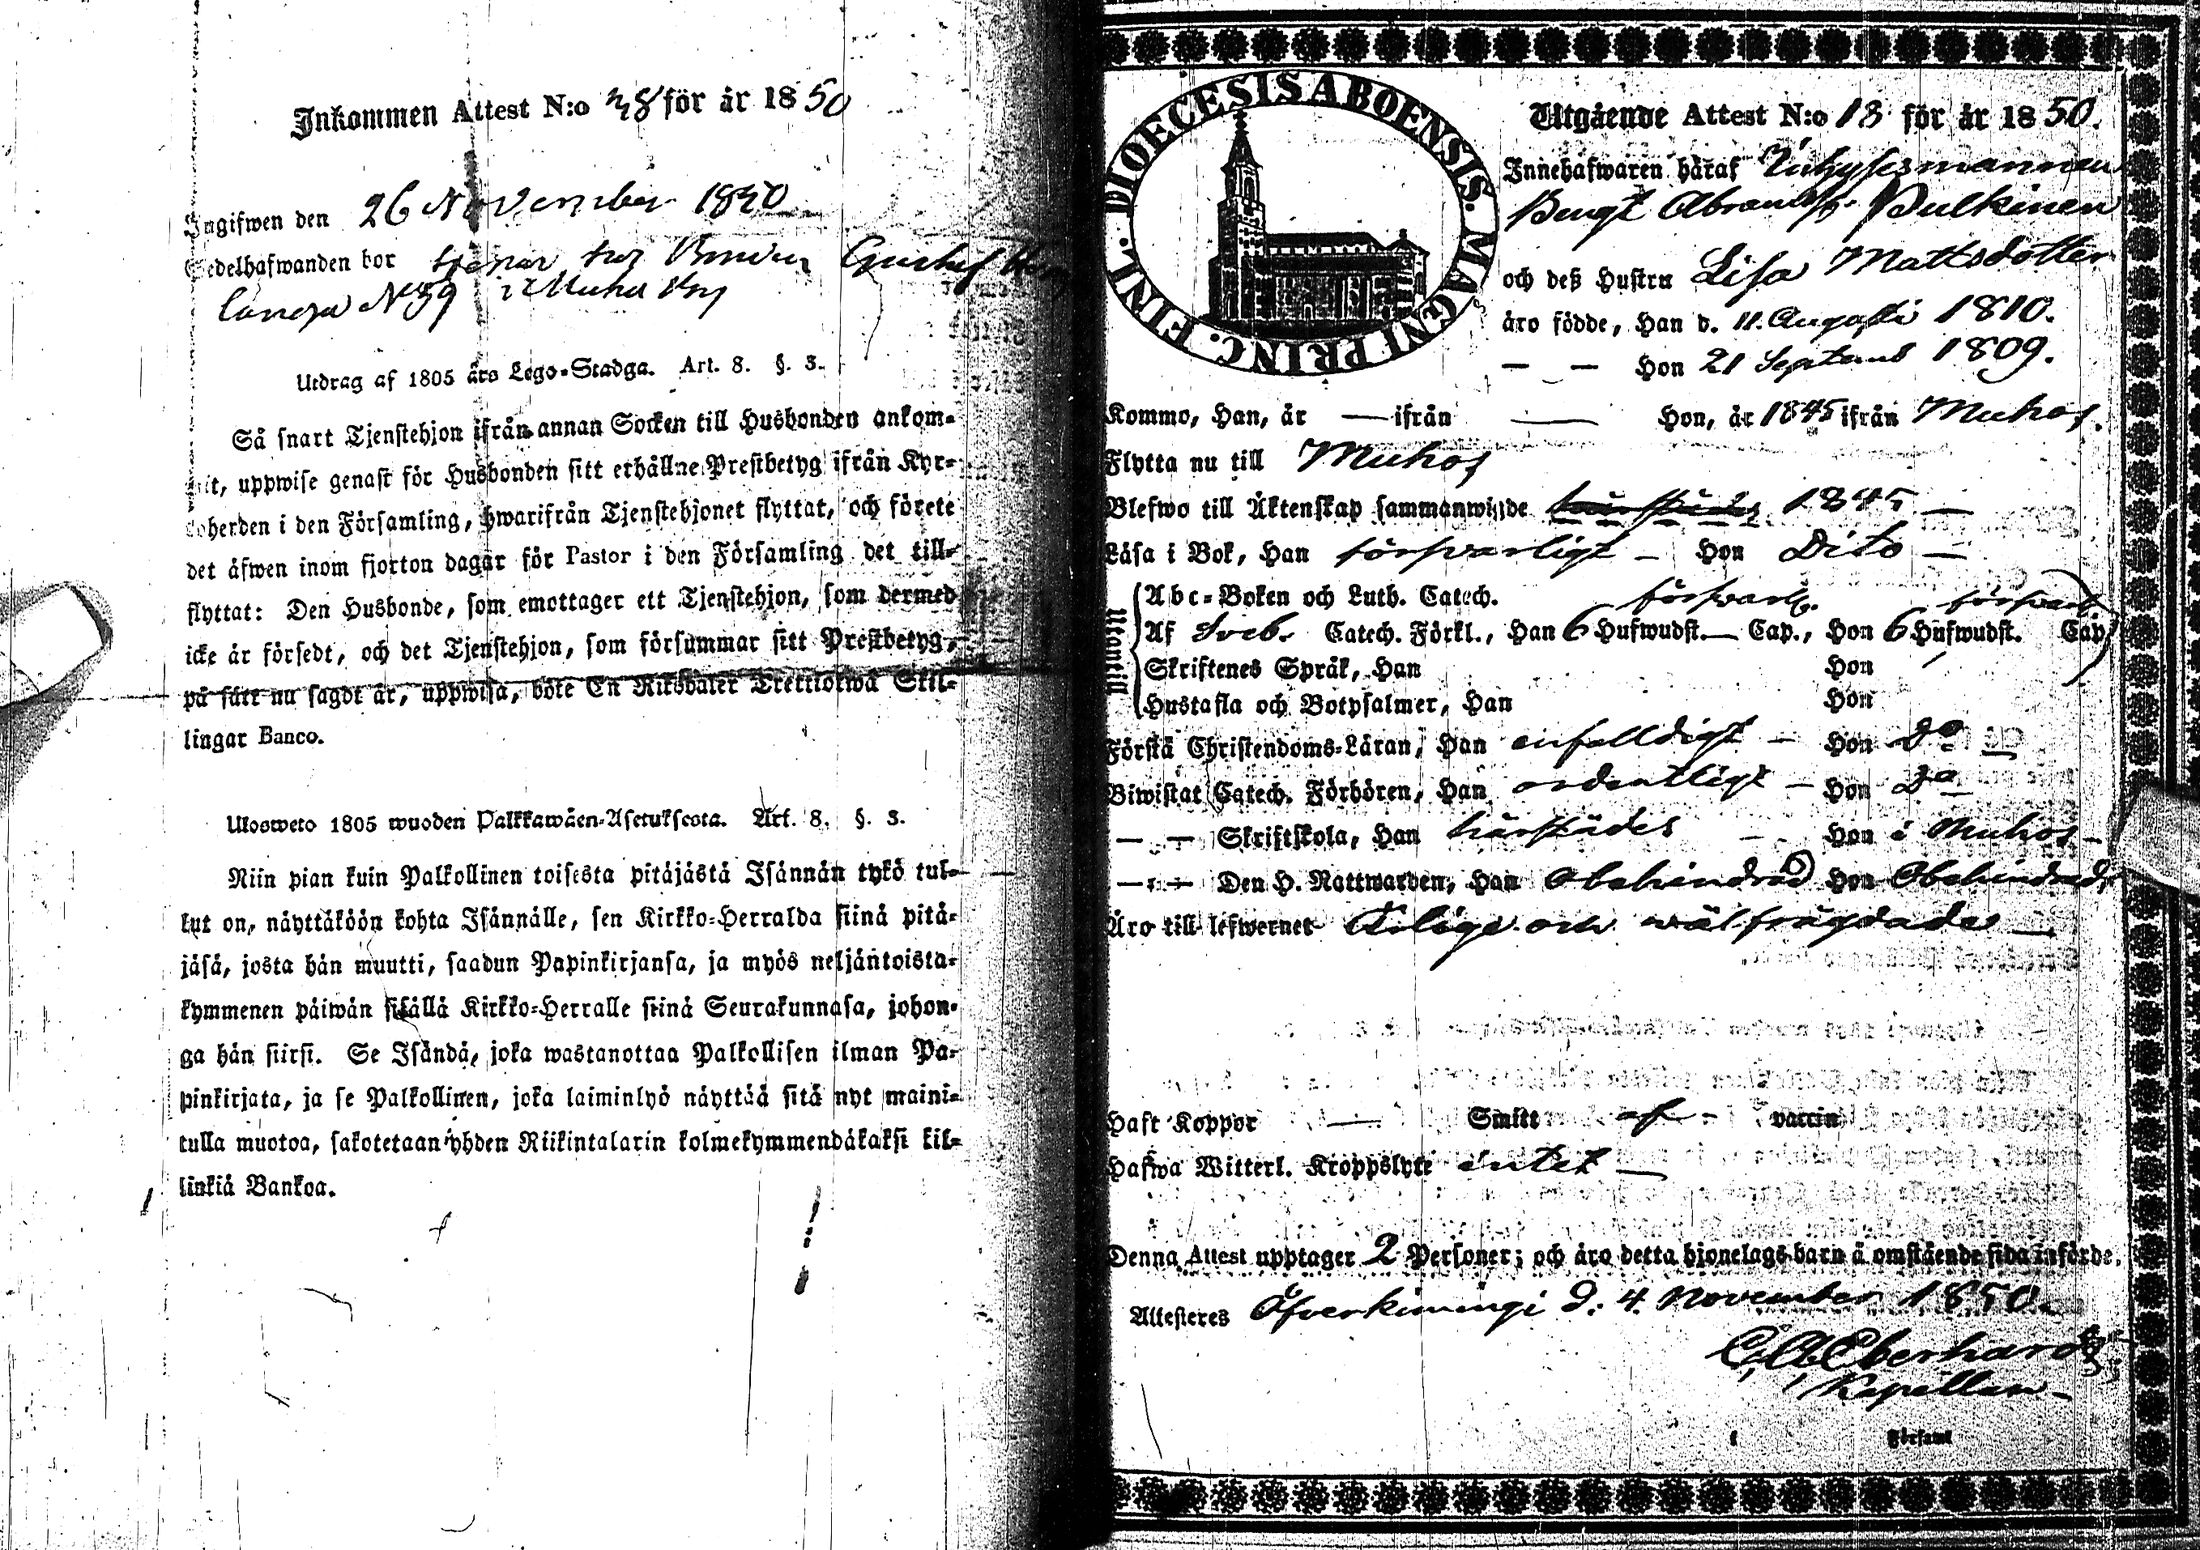 Inkommen Attest N:o 38 för år 1850
Ingifwen den 26 November 1850
Sedelhafwanden bor Gustaf
N 59
Utdrag af 1805 års Lego-Stadga. Art. 8. §. 3.
Så snart Tjenstehjon ifrån annan Socken till Husbonden ankom-
mit, uppwise genast för Husbonden sitt erhållne Prestbetyg ifrån Kyr-
koherden i den Församling, hwarifrån Tjenstehjonet flyttat, och förete
det äfwen inom fjorton dagar för Pastor i den Församling det till-
flyttat: Den Husbonde, som emottager ett Tjenstehjon, som dermed
icke är försedt, och det Tjenstehjon, som försummar sitt Prestbetyg,
på sätt nu sagdt är, uppwisa, böte En Riksdaler Trettiotwå Skil-
lingar Banco.
Ulosweto 1805 wuoden Palkkawäen-Asetuksesta. Art. 8. §. 3.
Niin pian kuin Palkollinen toisesta pitäjästä Isännän tykö tul-
lut on, näyttäköön kohta Isännälle, sen Kirkko-Herralda siinä pitä-
jäsä, josta hän muutti, saadun Papinkirjansa, ja myös neljäntoista-
kymmenen päiwän sisällä Kirkko-Herralle siinä Seurakunnasa, johon-
ga hän siirsi. Se Isändä, joka wastanottaa Palkollisen ilman Pa-
pinkirjata, ja se Palkollinen, joka laiminlyö näyttää sitä nyt maini-
tulla muotoa, sakotetaan yhden Riikintalarin kolmekymmendäkaksi kil-
linkiä Bankoa.
DIOECESIS ABOENSIS. MAGNI PRINC. FINL.
Utgående Attest N:o 13 för år 1850.
Innehafwaren häraf Inhysesmannen
Bengt Abramss. Pulkinen
och deß Hustru Lisa Mattsdotter
äro födde, Han d. 11 Augusti 1810.
— — Hon 21 Septemb 1809.
Kommo, Han, år — ifrån — Hon, år 1845 ifrån Muhos.
Flytta nu till Muhos
Blefwo till Äktenskap sammanwigde härstädes 1845 —
Läsa i Bok, Han försvarligt — Hon Dito —
Utantill
Abc-Boken och Luth. Catech. försvarl. försvarl.
Af Sveb. Catech. Förkl., Han 6 Hufwudst. — Cap., Hon 6 Hufwudst. Cap
Skriftenes Språk, Han Hon
Hustafla och Botpsalmer, Han Hon
Förstå Christendoms-Läran, Han enfalldigt — Hon Do —
Biwistat Catech. Förhören, Han ordentligt — Hon Do
— — Skriftskola, Han härstädes — Hon i Muhos —
— — Den H. Nattwarden, Han Obehindrad Hon Obehindrad
Äro till lefwernet Ärlige och wälfrägdade —
Haft Koppor — Smitt af - vaccin
Hafwa Witterl. Kroppslyte intet —
Denna Attest upptager 2 Personer; och äro detta hjonelags barn å omstående sida införde.
Attesteres Öfverkiimingi d. 4 November 1850.
C. A. Eberhardt
Kapellan
i Församl